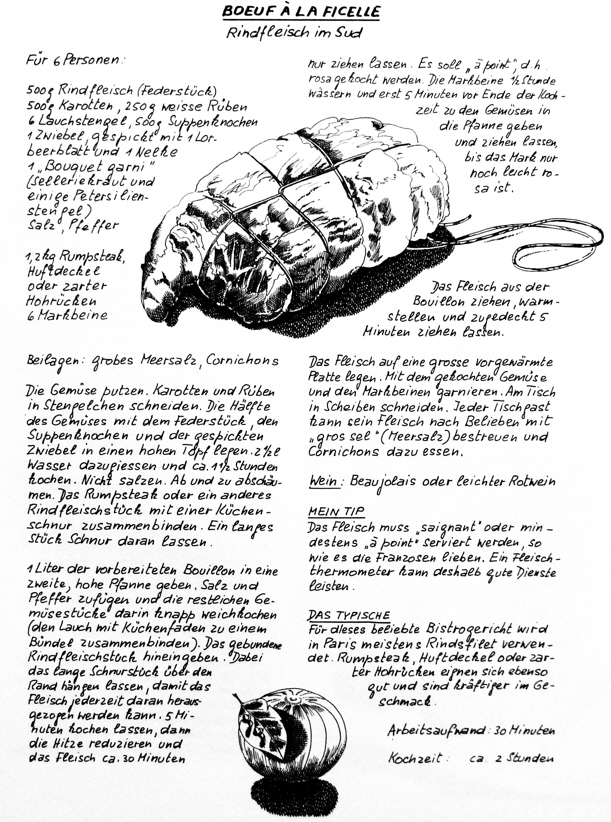 BOEUF À LA FICELLE
Rindfleisch im Sud
Für 6 Personen:
500g Rindfleisch (Federstück)
500g Karotten, 250g weisse Rüben
6 Lauchstengel, 500g Suppenknochen
1 Zwiebel, gespickt mit 1 Lor-
beerblatt und 1 Nelke
1 „Bouquet garni"
(Selleriekraut und
einige Petersilien-
stengel)
Salz, Pfeffer
1,2 kg Rumpsteak,
Huftdeckel
oder zarter
Hohrücken
6 Markbeine
Beilagen: grobes Meersalz, Cornichons
Die Gemüse putzen. Karotten und Rüben
in Stengelchen schneiden. Die Hälfte
des Gemüses mit dem Federstück, den
Suppenknochen und der gespickten
Zwiebel in einen hohen Topf legen. 2½ l
Wasser dazugiessen und ca. 1½ Stunden
kochen. Nicht salzen. Ab und zu abschäu-
men. Das Rumpsteak oder ein anderes
Rindfleischstück mit einer Küchen-
schnur zusammenbinden. Ein langes
Stück Schnur daran lassen.
1 Liter der vorbereiteten Bouillon in eine
zweite, hohe Pfanne geben. Salz und
Pfeffer zufügen und die restlichen Ge-
müsestücke darin knapp weichkochen
(den Lauch mit Küchenfaden zu einem
Bündel zusammenbinden). Das gebundene
Rindfleischstück hineingeben. Dabei
das lange Schnurstück über den
Rand hängen lassen, damit das
Fleisch jederzeit daran heraus-
gezogen werden kann. 5 Mi-
nuten kochen lassen, dann
die Hitze reduzieren und
das Fleisch ca. 30 Minuten
nur ziehen lassen. Es soll „à point", d.h.
rosa gekocht werden. Die Markbeine ½ Stunde
wässern und erst 5 Minuten vor Ende der Koch-
zeit zu den Gemüsen in
die Pfanne geben
und ziehen lassen,
bis das Mark nur
noch leicht ro-
sa ist.
Das Fleisch aus der
Bouillon ziehen, warm-
stellen und zugedeckt 5
Minuten ziehen lassen.
Das Fleisch auf eine grosse vorgewärmte
Platte legen. Mit dem gekochten Gemüse
und den Markbeinen garnieren. Am Tisch
in Scheiben schneiden. Jeder Tischgast
kann sein Fleisch nach Belieben mit
„gros sel" (Meersalz) bestreuen und
Cornichons dazu essen.
Wein: Beaujolais oder leichter Rotwein
MEIN TIP
Das Fleisch muss „saignant" oder min-
destens „à point" serviert werden, so
wie es die Franzosen lieben. Ein Fleisch-
thermometer kann deshalb gute Dienste
leisten.
DAS TYPISCHE
Für dieses beliebte Bistrogericht wird
in Paris meistens Rindsfilet verwen-
det. Rumpsteak, Huftdeckel oder zar-
ter Hohrücken eignen sich ebenso
gut und sind kräftiger im Ge-
schmack.
Arbeitsaufwand: 30 Minuten
Kochzeit: ca. 2 Stunden